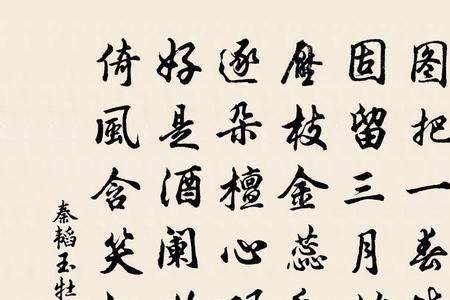 图把一春
固留三月
壓枝金蕊
逐朵檀心
好是酒阑
倚風含笑
秦韬玉牡